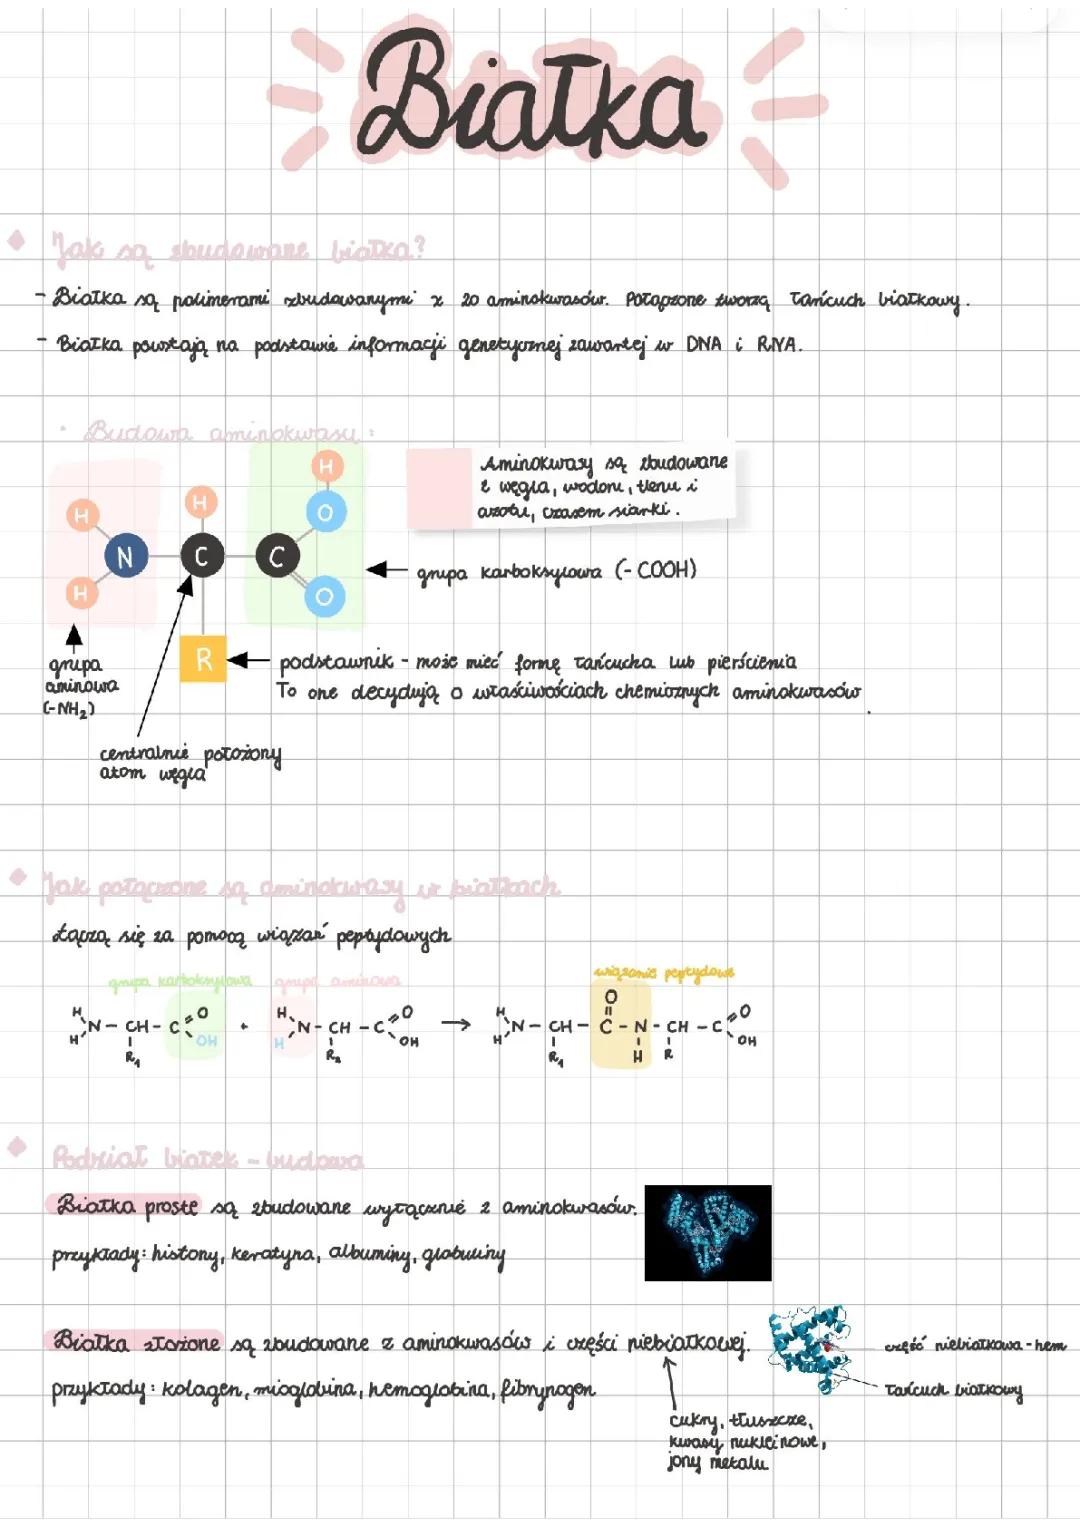 Białka
Jak są zbudowane białka?
- Białka są polimerami zbudowanymi z 20 aminokwasów. Połączone tworzą łańcuch białkowy.
- Białka powstają na podstawie informacji genetycznej zawartej w DNA i RNA.
• Budowa aminokwasu:
Aminokwasy są zbudowane
z węgla, wodoru, tlenu i
azotu, czasem siarki.
H
H
H
O
H
N
C
C
O
H
grupa karboksylowa (-COOH)
grupa
aminowa
(-NH₂)
R
podstawnik - może mieć formę łańcucha lub pierścienia
To one decydują o właściwościach chemicznych aminokwasów.
centralnie położony
atom węgla
Jak połączone są aminokwasy w białkach
Łączą się za pomocą wiązań peptydowych
grupa karboksylowa grupa aminowa wiązanie peptydowe
O
H O H O H O
N - CH - C + N - CH - C → N - CH - C - N - CH - C
H OH H OH H OH
R₁ R₂ R₁ H R
Podział białek - budowa
Białka proste są zbudowane wyłącznie z aminokwasów.
przykłady: histony, keratyna, albuminy, globuliny
Białka złożone są zbudowane z aminokwasów i części niebiałkowej.
część niebiałkowa - hem
przykłady: kolagen, mioglobina, hemoglobina, fibrynogen
łańcuch białkowy
cukry, tłuszcze,
kwasy nukleinowe,
jony metalu